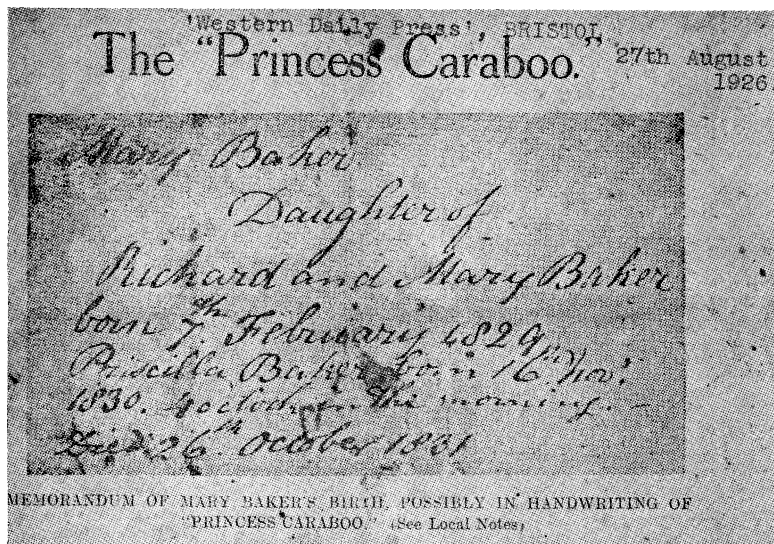 'Western Daily Press', BRISTOL
The "Princess Caraboo."
27th August
1926.
Mary Baker
Daughter of
Richard and Mary Baker
born 7th February 1829
Priscilla Baker born 16th Novr.
1830. 4 oclock in the morning. –
Died 26th October 1831
MEMORANDUM OF MARY BAKER'S BIRTH, POSSIBLY IN HANDWRITING OF
"PRINCESS CARABOO." (See Local Notes)